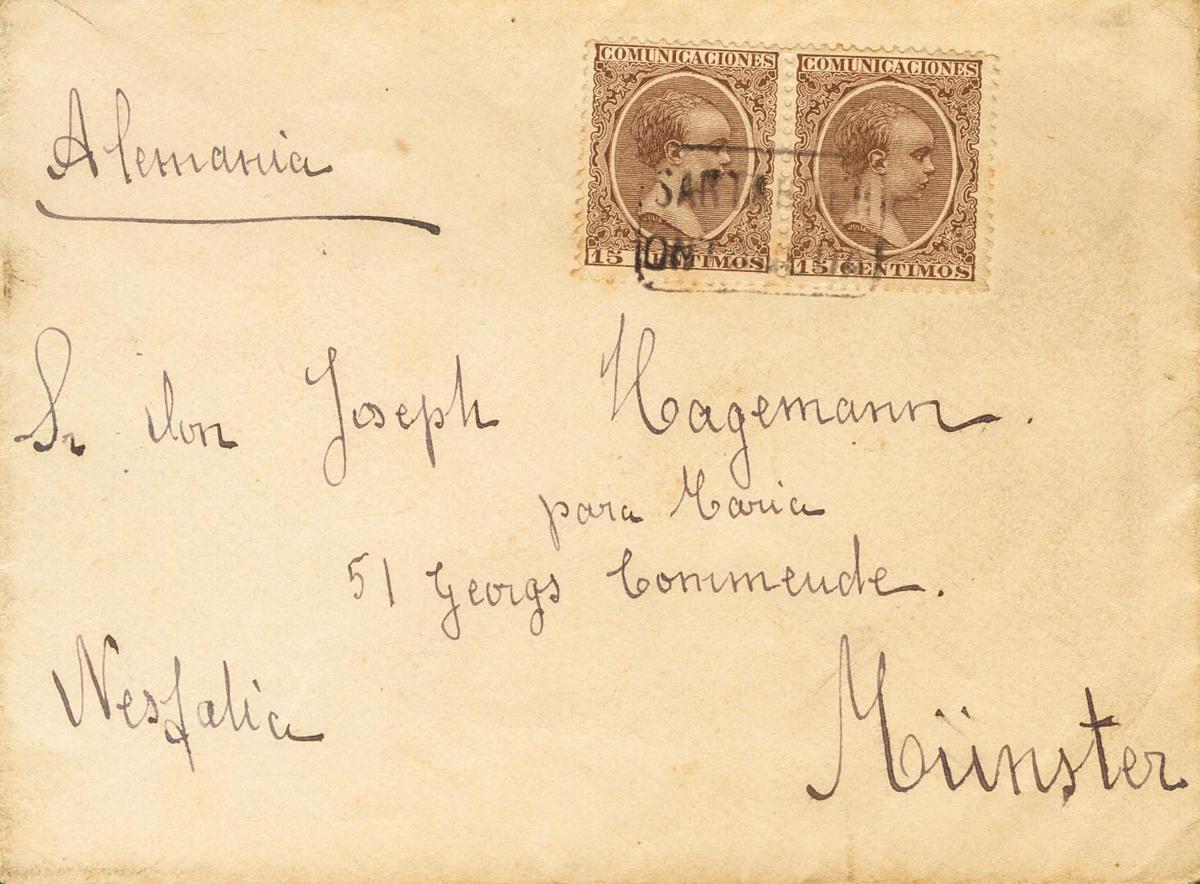 COMUNICACIONES COMUNICACIONES
Alemania
15 CENTIMOS 15 CENTIMOS
Sr don Joseph Hagemann.
para Maria
51 Georgs Commende.
Wesfalia
Münster